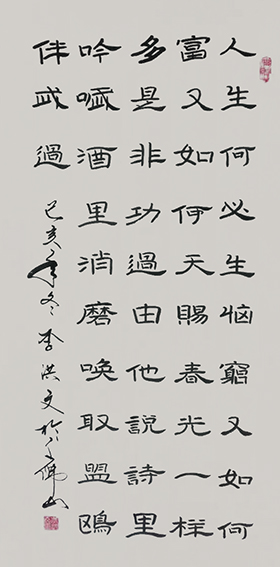 人生何必生惱窮又如何
富又如何天賜春光一樣
多是非功過由他說詩里
吟哦酒里消磨喚取盟鷗
伴我過
己亥年冬李洪文於佛山